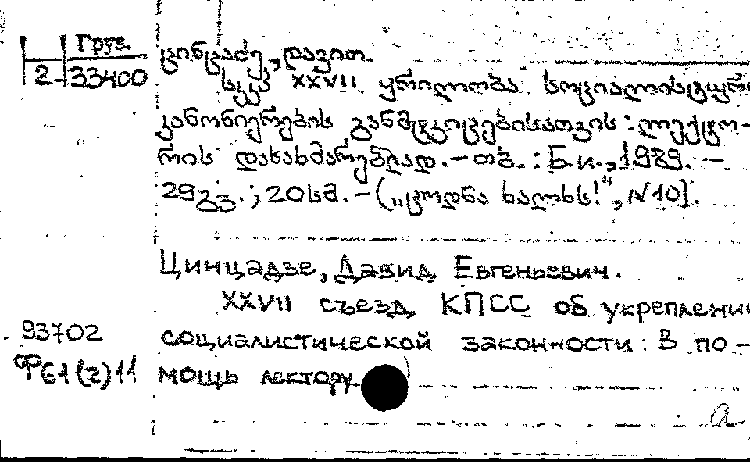 Груз.
2-33400
ცინცაძე, დავით.
სკკპ XXVII ყრილობა სოციალისტური
კანონიერების განმტკიცებისათვის : ლექტო-
რის დასახმარებლად. – თბ. : Б.и., 1989. –
29 გვ. ; 20 სმ. – („ცოდნა ხალხს!“, N 10).
Цинцадзе, Давид Евгеньевич.
XXVII съезд КПСС об укреплении
социалистической законности : В по-
мощь лектору.
93702
Ф61(2)11